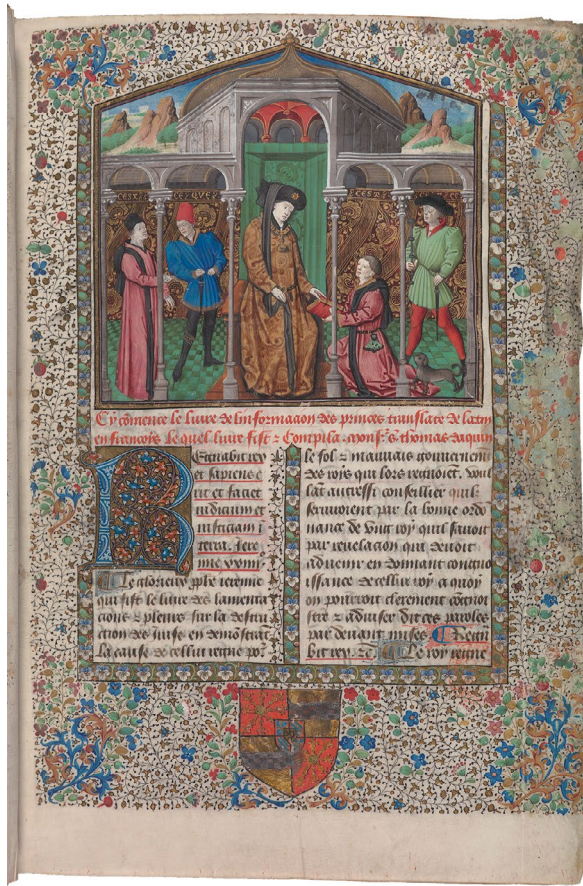 Cy cōmence le liure de linformacion des princes translate de latin
en francoys le quel liure fist ⁊ Compila monsʳ s. thomas daquin
Regnabit rex
et sapiens e
rit et faciet
iudicium et
iusticiam ī
terra. Jere
mie xxiii
Le glorieux pphe ieremie
qui fist le liure des lamenta
cions ⁊ pleurs sur la destru
ction des iuifs en demōstrāt
la cause de cellui regne po
le fol ⁊ mauuais gouuernemt
des roys qui lors regnoiēt. voul
lāt aucressi conseillier quilz
feruuoient par la bonne ordo
nance de vng roy quil sauoit
par reuelacion qui deuoit
aduenir en donnant congno
issance de cellui roy a quoy
on pourroit clerement cōgnoi
stre ⁊ aduiser dit ces paroles
par deuant mises Regna
bit rex. ⁊c Le roy regne